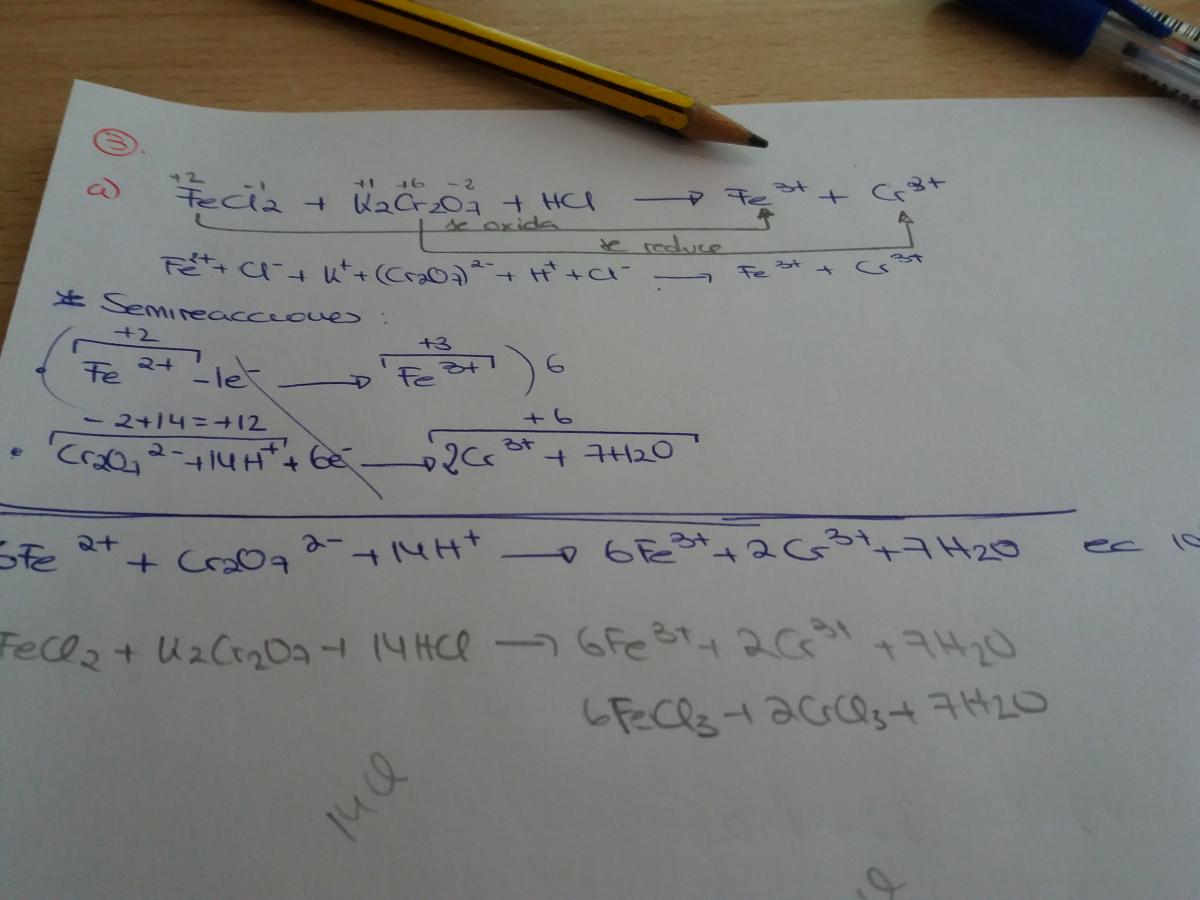 3.
a) +2 -1 +1 +6 -2
FeCl2 + K2Cr2O7 + HCl → Fe³⁺ + Cr³⁺
se oxida
se reduce
Fe²⁺ + Cl⁻ + K⁺ + (Cr2O7)²⁻ + H⁺ + Cl⁻ → Fe³⁺ + Cr³⁺
* Semireacciones :
+2 +3
• (Fe²⁺ - 1e⁻ → Fe³⁺) 6
- 2+14 = +12 + 6
• Cr2O7²⁻ + 14H⁺ + 6e⁻ → 2Cr³⁺ + 7H2O
6Fe²⁺ + Cr2O7²⁻ + 14H⁺ → 6Fe³⁺ + 2Cr³⁺ + 7H2O ec
FeCl2 + K2Cr2O7 + 14HCl → 6Fe³⁺ + 2Cr³⁺ + 7H2O
6FeCl3 + 2CrCl3 + 7H2O
14Cl